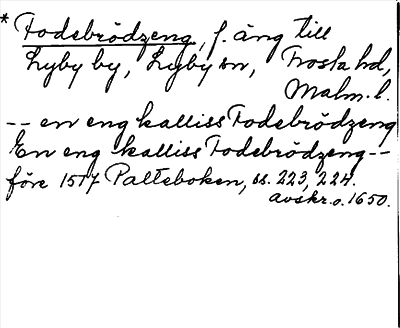 * Fodebrödzeng, f. äng till
Lyby by, Lyby sn, Frosta hd,
Malm. l.
-- en eng kalliss Fodebrödzeng
En eng kalliss Fodebrödzeng --
före 1517 Palteboken, ss. 223, 224.
avskr. o. 1650.